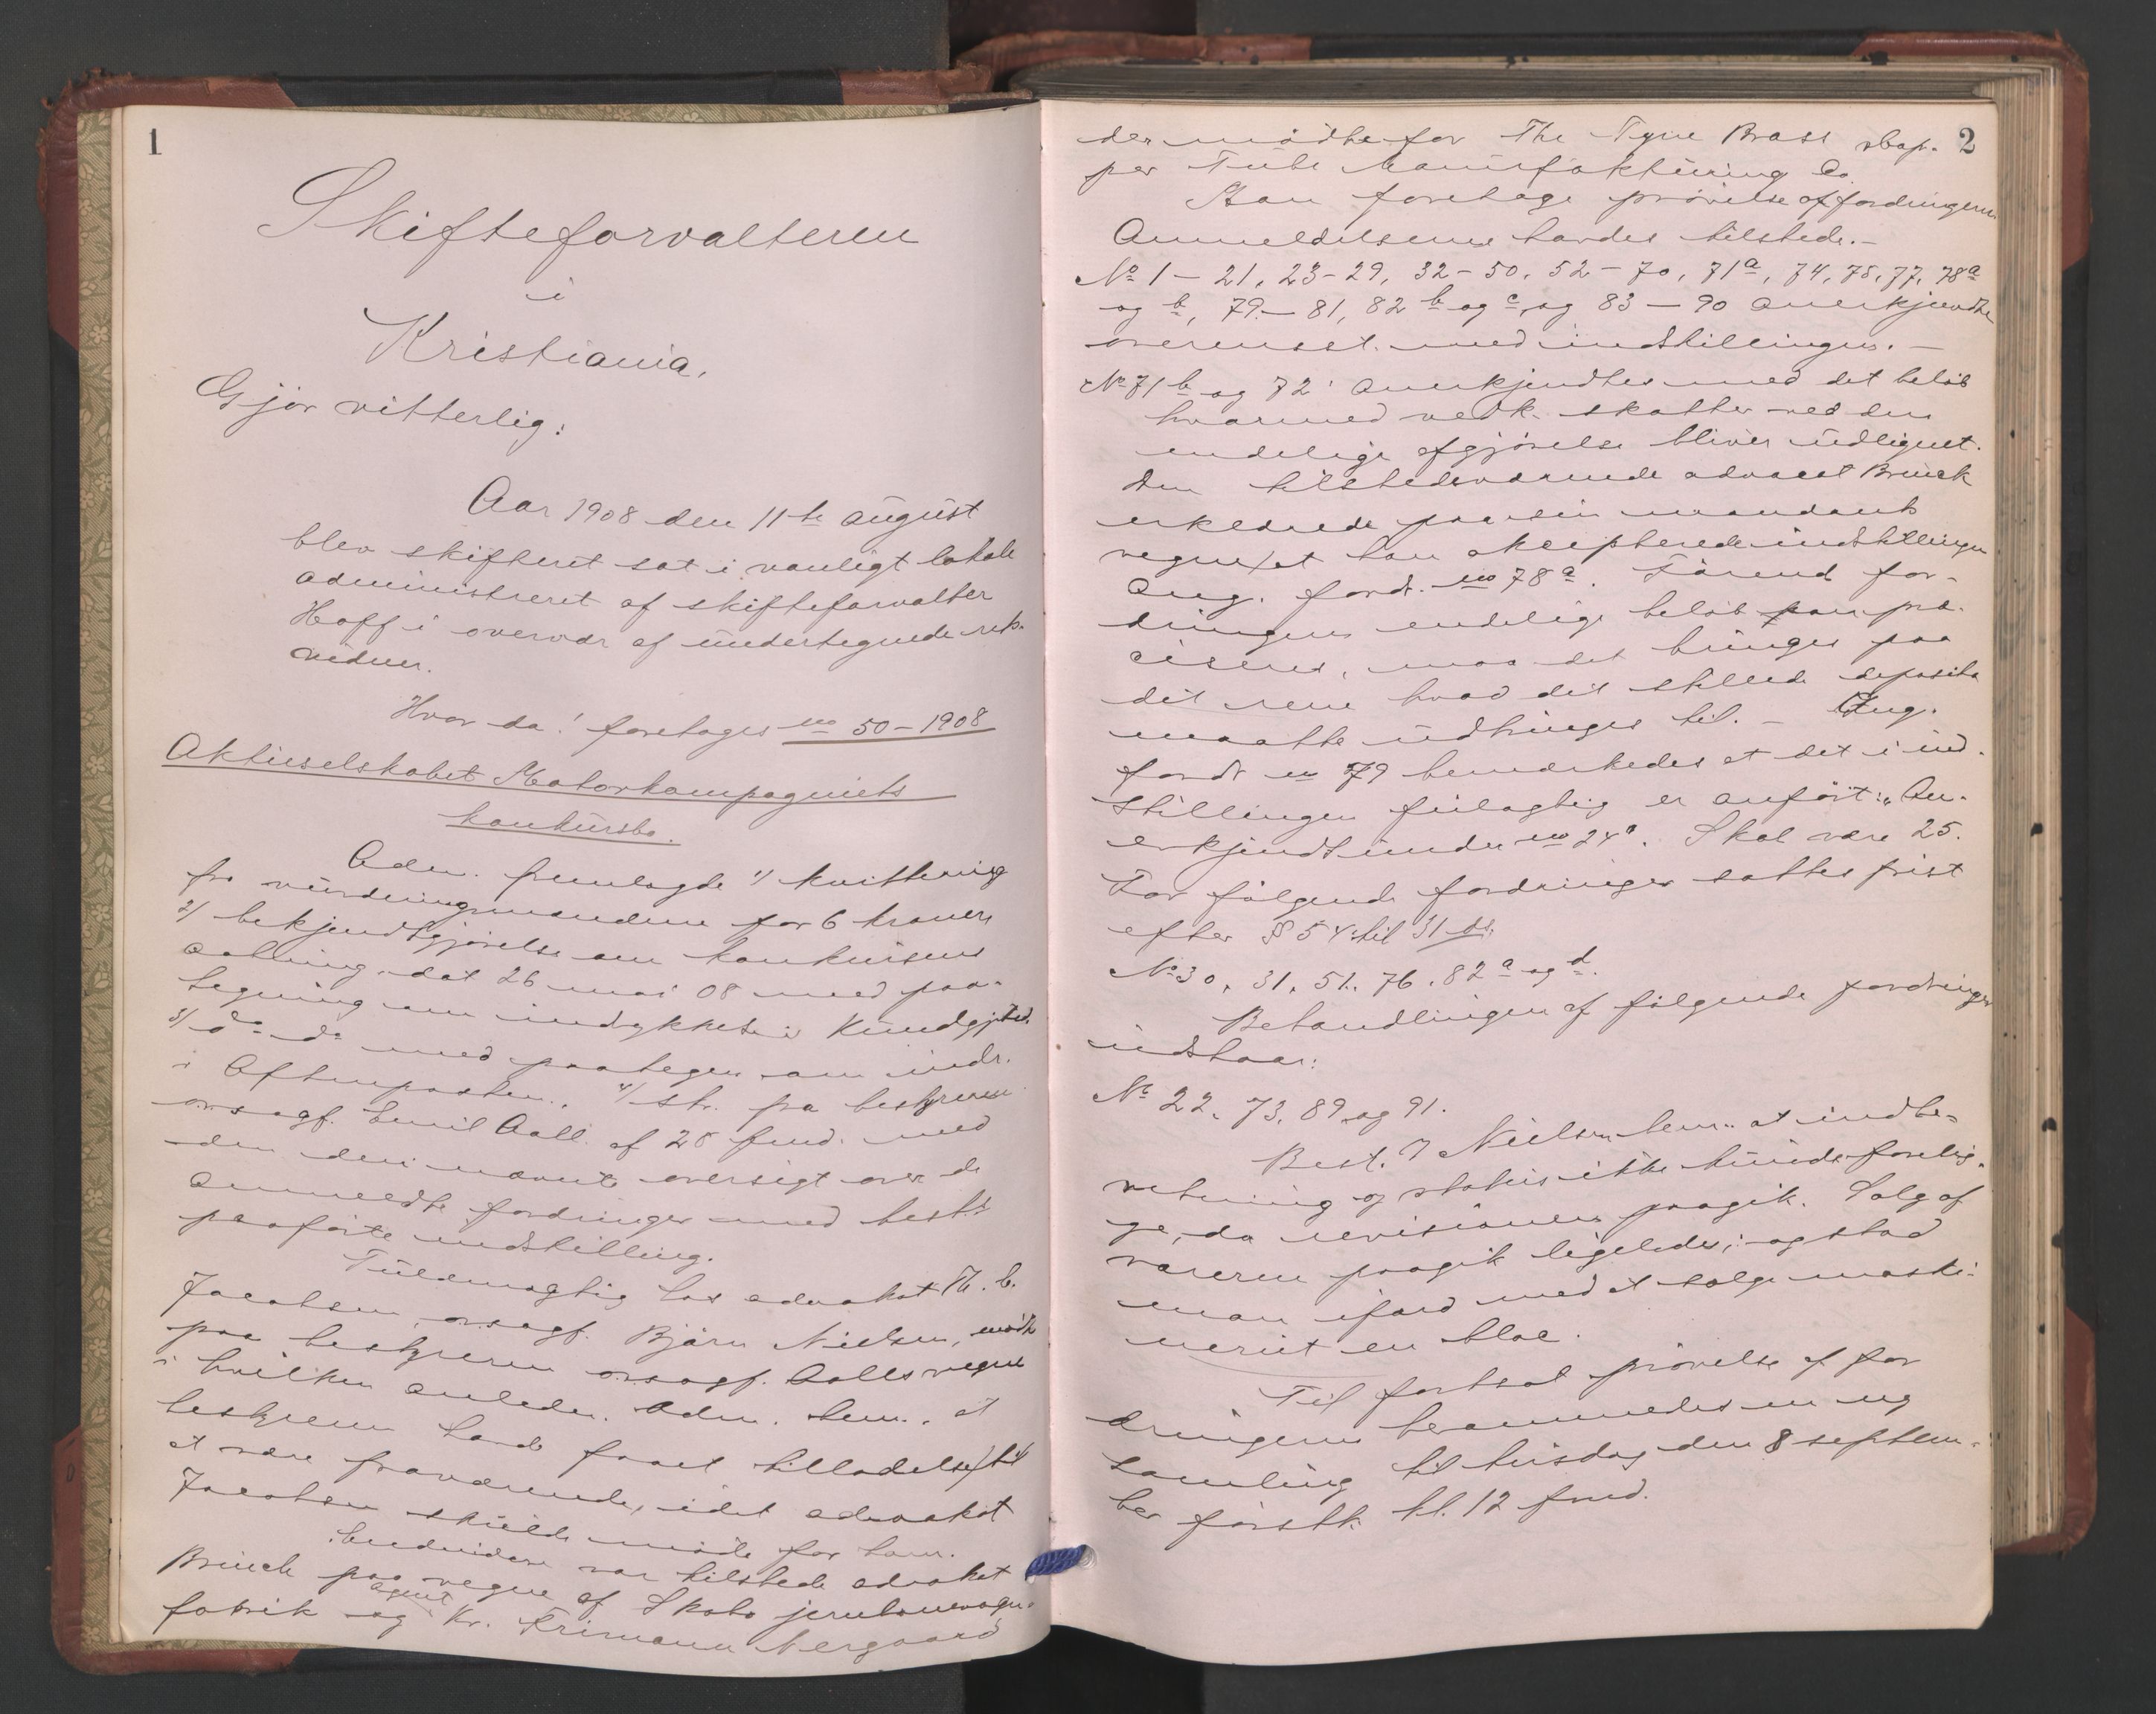 1
Skifteforvalteren
i
Kristiania,
Gjør vitterlig:
Aar 1908 den 11te august
blev skifteret sat i vanligt lokale
administreret af skifteforvalter
Hoff i overvær af undertegnede rets-
vidner.
Hvor da! foretoges no 50-1908
Aktieselskabet Motorkompagniets
konkursbo.
Adm. fremlagde 1/ kvittering
fra vurderingsmændene for 6 kroner
2/ bekjendtgjørelse om konkursens
aabning dat 26 mai 08 med paa-
tegning om indrykkelse i Kundgjtid.
3/ do do med paategn om indr.
i Aftenposten. 4/ skr. fra bestyreren
o.r.sagf. Emil Aall af 28 f.md. med
den deri nævnte oversigt over de
anmeldte fordringer med best's
paaførte indstilling.
Fuldmægtig hos advokat Th. C.
Jacobsen, o.r.sagf. Bjørn Nielsen, mødte
paa bestyreren o.r.sagf. Aalls vegne
i hvilken anledn. Adm. bem., at
bestyreren havde faaet tilladelse til
at være fraværende, idet advokat
Jacobsen skulde møde for ham.
Endvidere var tilstede advokat
Brinck paa vegne af Skabo jernbanevogn-
fabrik og agent Kr. Frimann Nergaard
2
der mødte for The Tyne Brass
per Tube Manufakturing Co.
Man foretage prøvelse af fordringerne
Anmeldelserne havdes tilstede.-
No 1 - 21, 23-29, 32-50, 52-70, 71a, 74, 75, 77, 78a
og b, 79-81, 82 b og c og 83-90 anerkjendtes
overensst. med indstillingen.-
No 71 b og 72: anerkjendtes med det beløb
hvormed vedk. skatter ved den
endelige afgjørelse bliver udlignet.
Den tilstedeværende advocat Brinck
erklærede paa sin mandants
vegne, at han aksepterede indstillingen
ang. fordr. no 78a. Førend for-
dringens endelige beløb kan præ-
ciseres, maa det bringes paa
det rene hvad det stillede deposita
maatte udbringes til. - Ang.
fordr no 79 bemærkedes at det i ind-
stillingen feilagtig er anført: "An-
erkjendt under no 24". Skal være 25.
For følgende fordringer sattes frist
efter § 54 til 31 ds:
No 30, 31, 51, 76, 82 a og d.
Behandlingen af følgende fordringer
udstaar:
No 22, 73, 89 og 91.
Best. v/ Nielsen bem. at indbe-
retning og status ikke kunde forelig-
ge, da revisionen paagik. Salg af
varerne paagik ligeledes; og stod
man ifærd med at sælge maski-
neriet en bloc.
Til fortsat prøvelse af for
dringerne berammedes en ny
samling til tirsdag den 8 septem-
ber førstk. kl. 12 fmd.